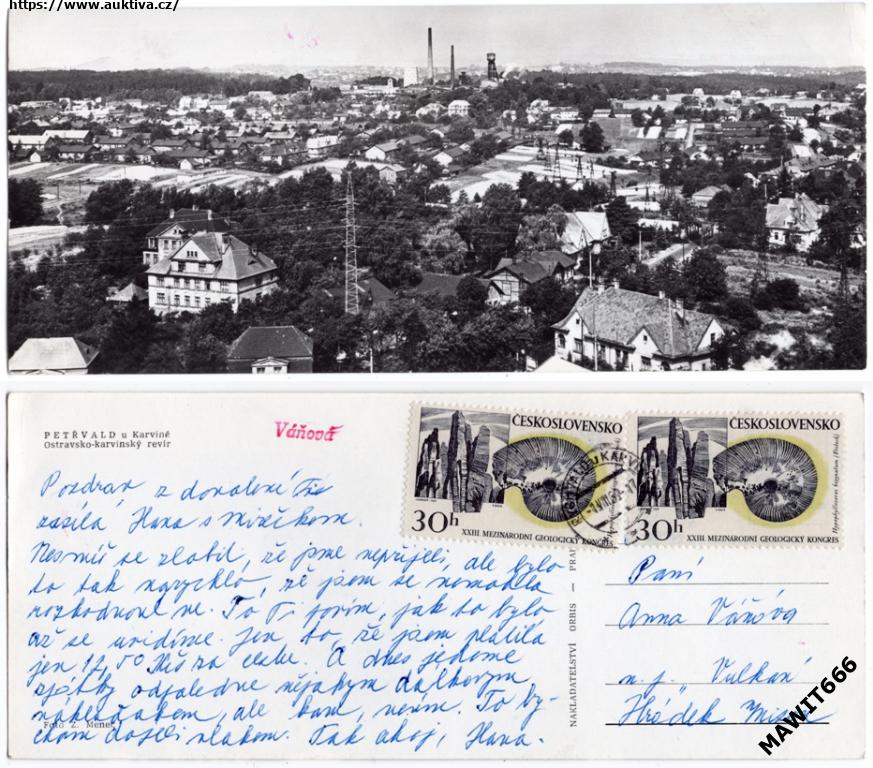 https://www.auktiva.cz/
PETŘVALD u Karviné
Ostravsko-karvinský revír
Váňová
ČESKOSLOVENSKO
30h
XXIII MEZINÁRODNÍ GEOLOGICKÝ KONGRES
ČESKOSLOVENSKO
30h
XXIII. MEZINÁRODNÍ GEOLOGICKÝ KONGRES
Pozdrav z dovolené Ti
zasílá Hana s mirečkem.
Nesmíš se zlobit, že jsme nepřijeli, ale bylo
to tak narychlo, že jsem se nemohla
rozhodnout ne. To Ti povím, jak to bylo
až se uvidíme. Jen to, že jsem platila
jen 12,50 Kčs za cestu. A dnes jedeme
zpátky odpoledne nějakým dálkovým
náklaďákem, ale kam, nevím. To by-
chom dojeli vlakem. Tak ahoj, Hana.
Foto Z. Menec
NAKLADATELSTVÍ ORBIS — PRA
Paní
Anna Váňová
n. p. "Vulkán"
Hrádek
MAWIT666